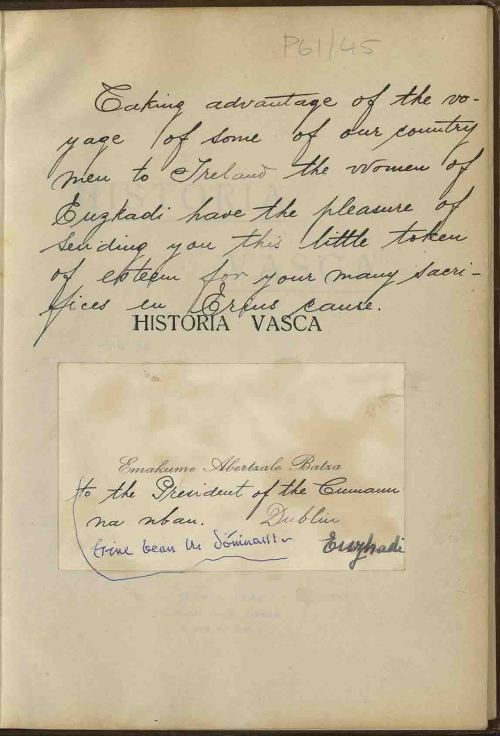 P61/45
Taking advantage of the vo-
yage of some of our country
men to Ireland the women of
Euzkadi have the pleasure of
sending you this little token
of esteem for your many sacri-
fices en Erins cause.
HISTORIA VASCA
Emakume Abertzale Batza
to the President of the Cumann
na mban. Dublin
bean Uí Dómnaill
Euzkadi